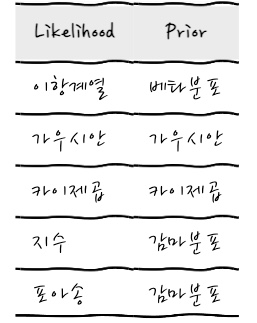 Likelihood Prior
이항계열 베타분포
가우시안 가우시안
카이제곱 카이제곱
지수 감마분포
포아송 감마분포